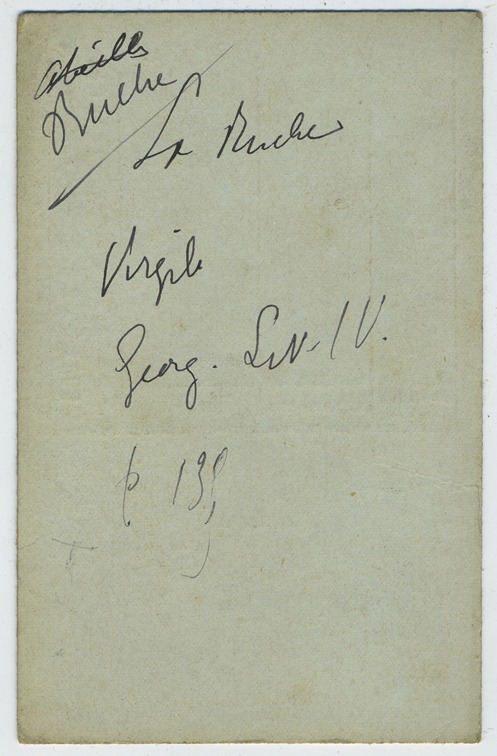 Abeille
Ruche
La Ruche
Virgile
Georg. Liv. IV.
p 139